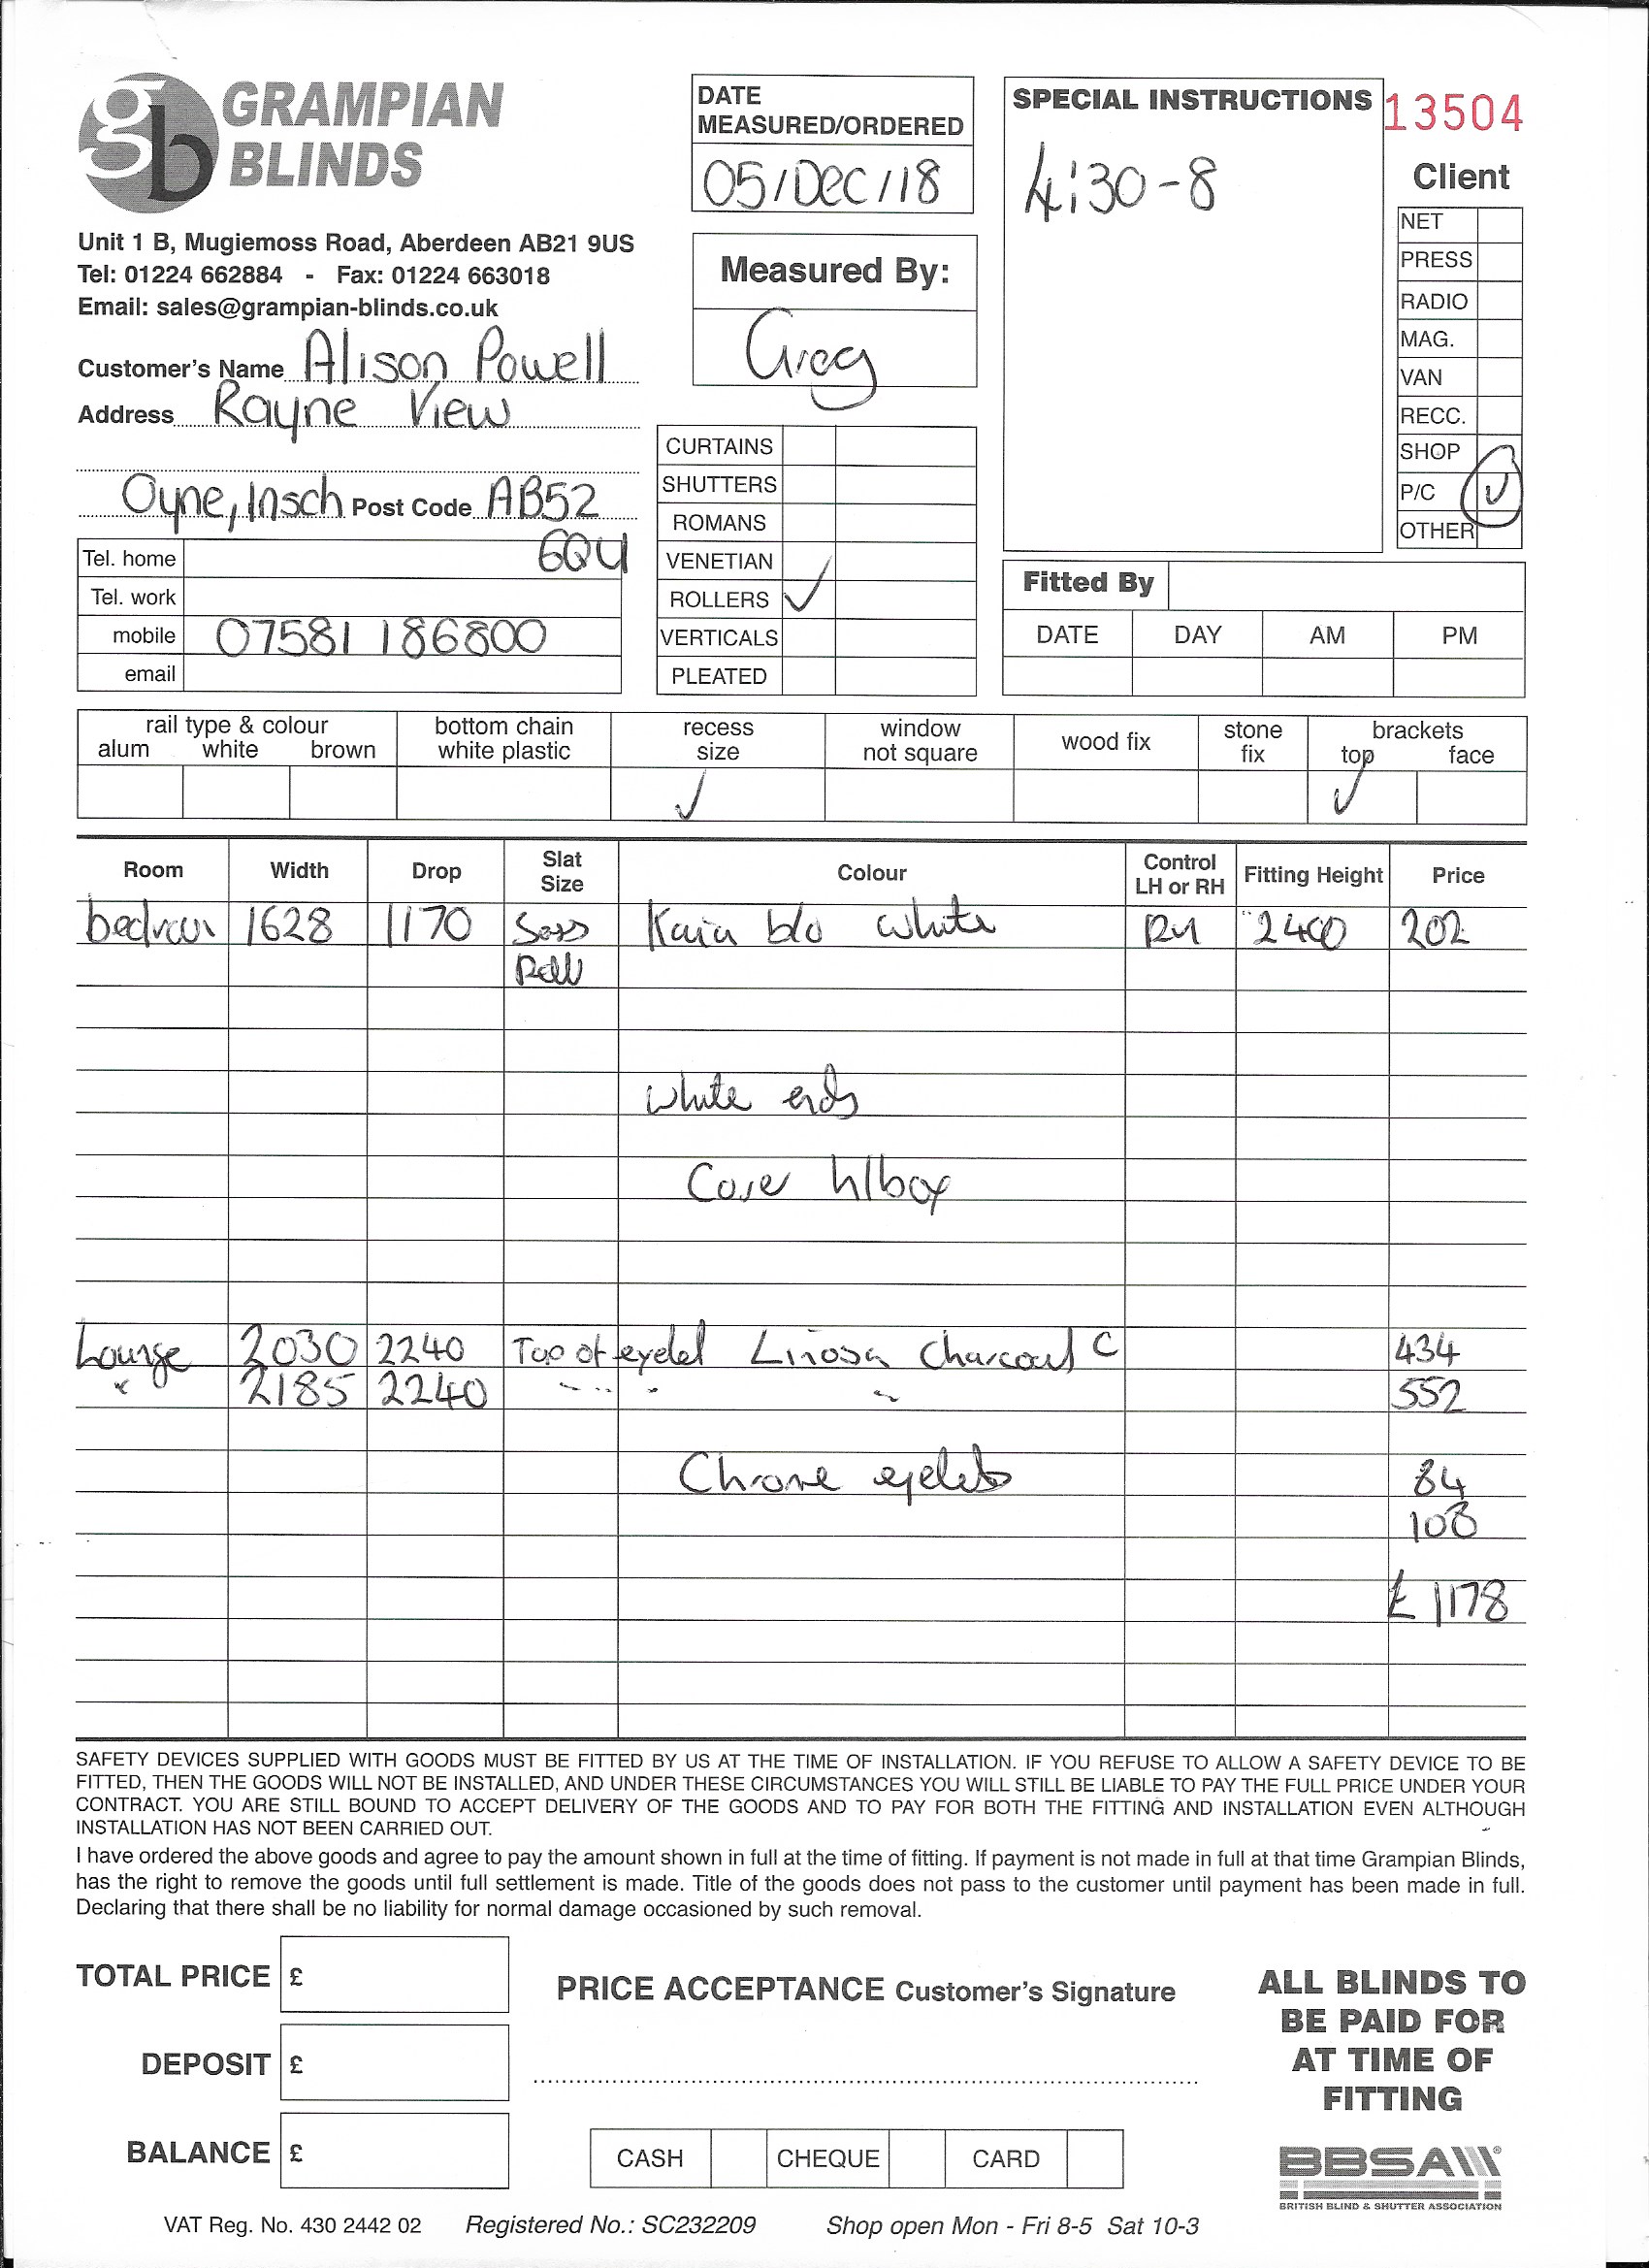 gb GRAMPIAN BLINDS
Unit 1 B, Mugiemoss Road, Aberdeen AB21 9US
Tel: 01224 662884 - Fax: 01224 663018
Email: sales@grampian-blinds.co.uk
Customer's Name Alison Powell
Address Rayne View
Oyne, Insch Post Code AB52
6QU
Tel. home
Tel. work
mobile 07581 186800
email
DATE
MEASURED/ORDERED
05/Dec/18
Measured By:
Greg
CURTAINS
SHUTTERS
ROMANS
VENETIAN
ROLLERS ✓
VERTICALS
PLEATED
SPECIAL INSTRUCTIONS
4:30-8
13504
Client
NET
PRESS
RADIO
MAG.
VAN
RECC.
SHOP
P/C ✓
OTHER
Fitted By
DATE DAY AM PM
rail type & colour
alum white brown
bottom chain
white plastic
recess
size
✓
window
not square
wood fix
stone
fix
brackets
top face
✓
Room Width Drop Slat Size Colour Control LH or RH Fitting Height Price
bedroom 1628 1170 Kaia b/o white RH 2400 202
White ends
h/box
Lounge 2030 2240 eyelet Linosa Charcoal C 434
" 2185 2240 " " " " 552
Chrome eyelets 84
108
£1178
SAFETY DEVICES SUPPLIED WITH GOODS MUST BE FITTED BY US AT THE TIME OF INSTALLATION. IF YOU REFUSE TO ALLOW A SAFETY DEVICE TO BE
FITTED, THEN THE GOODS WILL NOT BE INSTALLED, AND UNDER THESE CIRCUMSTANCES YOU WILL STILL BE LIABLE TO PAY THE FULL PRICE UNDER YOUR
CONTRACT. YOU ARE STILL BOUND TO ACCEPT DELIVERY OF THE GOODS AND TO PAY FOR BOTH THE FITTING AND INSTALLATION EVEN ALTHOUGH
INSTALLATION HAS NOT BEEN CARRIED OUT.
I have ordered the above goods and agree to pay the amount shown in full at the time of fitting. If payment is not made in full at that time Grampian Blinds,
has the right to remove the goods until full settlement is made. Title of the goods does not pass to the customer until payment has been made in full.
Declaring that there shall be no liability for normal damage occasioned by such removal.
TOTAL PRICE £
DEPOSIT £
BALANCE £
PRICE ACCEPTANCE Customer's Signature
CASH CHEQUE CARD
ALL BLINDS TO
BE PAID FOR
AT TIME OF
FITTING
BBSA
BRITISH BLIND & SHUTTER ASSOCIATION
VAT Reg. No. 430 2442 02 Registered No.: SC232209 Shop open Mon - Fri 8-5 Sat 10-3